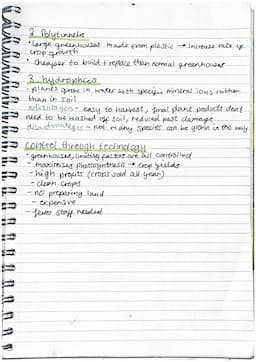 2. Polytunnels
• large greenhouses made from plastic → increase rate of
crop growth
• cheaper to build + replace than normal greenhouses
3. hydroponics
• plants grow in water with specific mineral ions rather
than in soil
advantages - easy to harvest, final plant products don't
need to be washed off soil, reduced pest damage
disadvantages - not many species can be grown in this way
control through technology
• greenhouses, limiting factors are all controlled
- maximises photosynthesis → crop yields
- high profits (crops sold all year)
- clean crops
- no preparing land
- expensive
- fewer staff needed